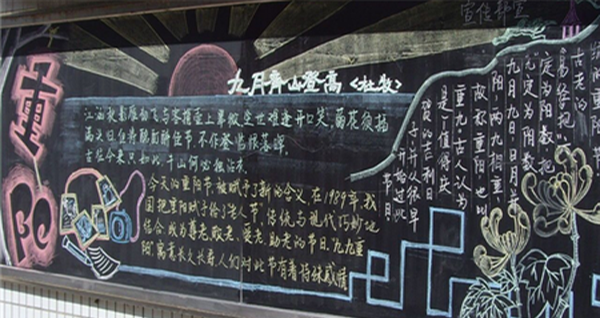 宣传部宣
重阳
九月齐山登高《杜牧》
江涵秋影雁初飞与客携壶上翠微尘世难逢开口笑。菊花须插
满头归但将酩酊酬佳节。不作登临恨落晖。
古往今来只如此。牛山何必独沾衣。
今天的重阳节,被赋予了新的含义,在1989年,我
国把重阳赋予给了老人节,传统与现代巧妙地
结合,成为尊老、敬老、爱老、助老的节日,九九重
阳,寓意长久长寿人们对此节有着特殊感情
的重阳节
古老的
易经把六
定为阴数把
九定为阳数
九月九日日月并
阳,两九相重,
故叫重阳,也叫
重九,古人认为
是个值得庆
贺的吉利日
子,并从很早
开始过此
节日